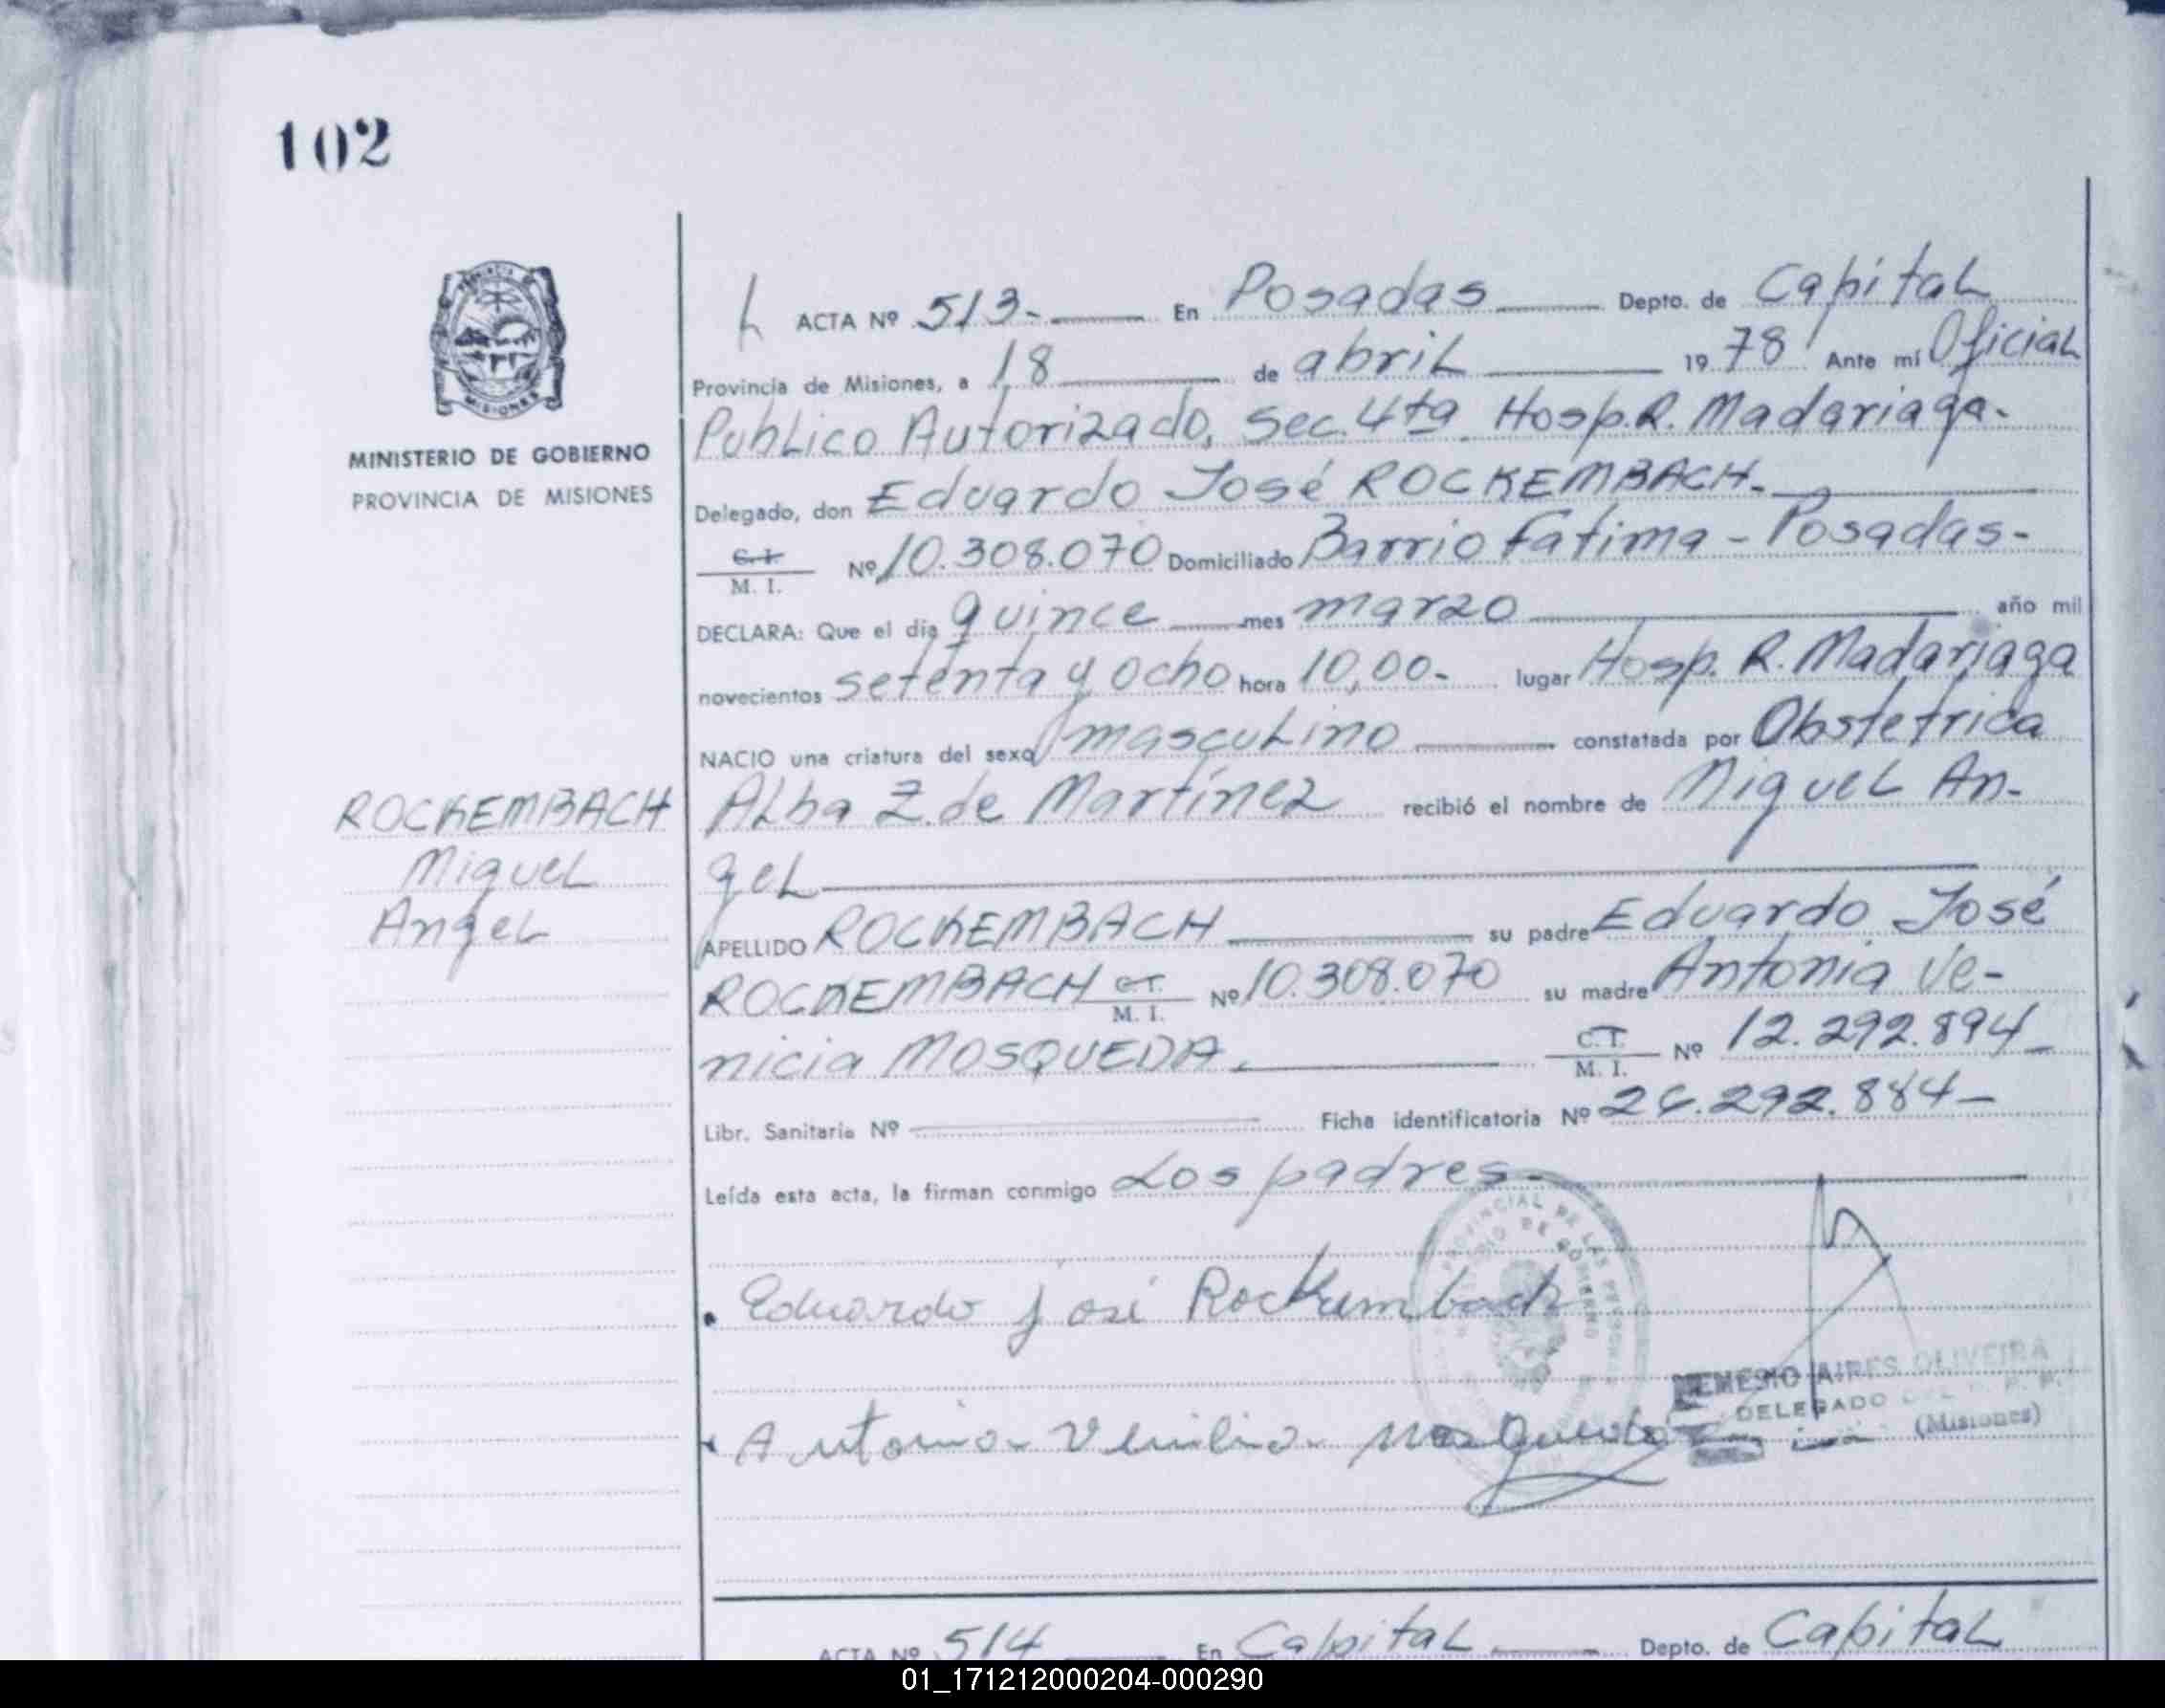 102
MINISTERIO DE GOBIERNO
PROVINCIA DE MISIONES
ROCKEMBACH
Miguel
Angel
ACTA Nº 513- En Posadas Depto. de Capital
Provincia de Misiones, a 18 de abril 1978 Ante mí Oficial
Publico Autorizado, Sec. 4ta Hosp. R. Madariaga-
Delegado, don Eduardo José ROCKEMBACH-
C.I. M. I. Nº 10.308.070 Domiciliado Barrio Fatima - Posadas-
DECLARA: Que el día quince mes marzo año mil
novecientos setenta y ocho hora 10,00- lugar Hosp. R. Madariaga
NACIO una criatura del sexo masculino constatada por Obstetrica
Alba Z. de Martínez recibió el nombre de Miguel An-
gel
APELLIDO ROCKEMBACH su padre Eduardo José
ROCKEMBACH C.I. M. I. Nº 10.308.070 su madre Antonia Ve-
nicia MOSQUEDA. C.I. M. I. Nº 12.292.894-
Libr. Sanitaria Nº Ficha identificatoria Nº 26.292.884-
Leída esta acta, la firman conmigo Los padres-
Eduardo José Rockembach
Antonia Mosqueda
NEMESIO AIRES OLIVEIRA
DELEGADO
(Misiones)
ACTA Nº 514 En Capital Depto. de Capital
01_171212000204-000290